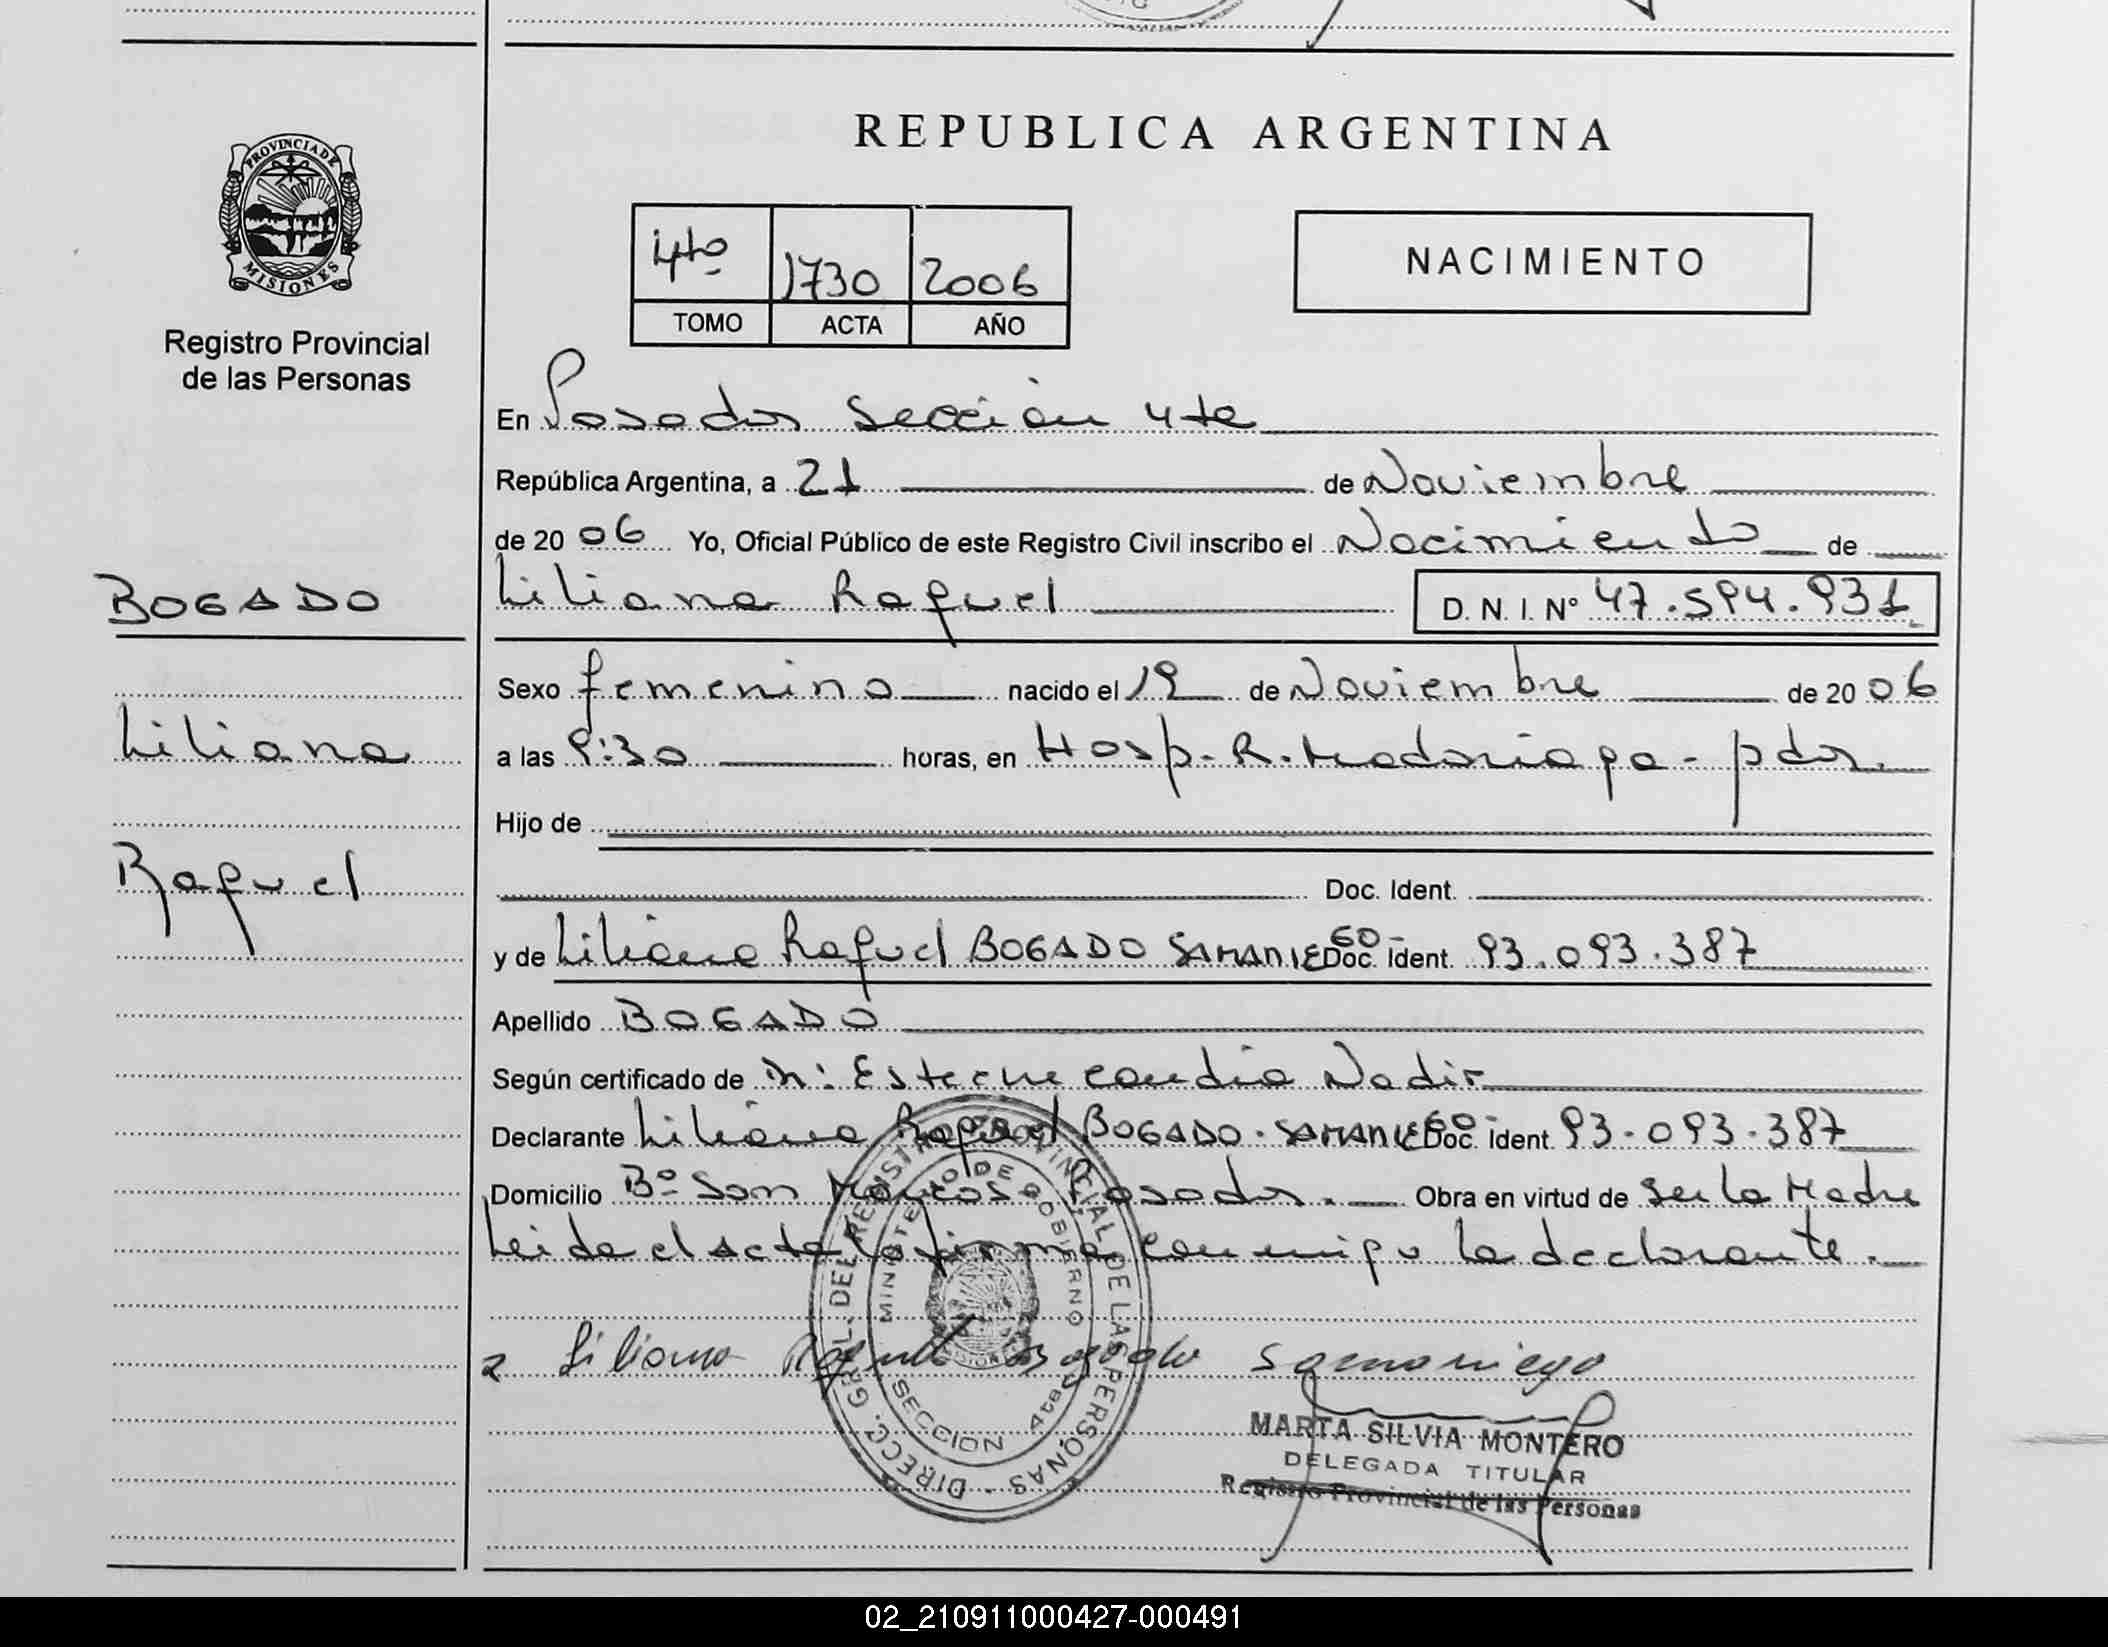 REPUBLICA ARGENTINA
PROVINCIA DE
MISIONES
Registro Provincial
de las Personas
4to 1730 2006
TOMO ACTA AÑO
NACIMIENTO
En Posadas Sección 4ta
República Argentina, a 21 de Noviembre
de 20 06 Yo, Oficial Público de este Registro Civil inscribo el Nacimiento de
BOGADO
Liliana Raquel D. N. I. Nº 47.594.931
Sexo femenino nacido el 19 de Noviembre de 20 06
Liliana
a las 9:30 horas, en Hosp. R. Madariaga - pdas.
Hijo de
Raquel
Doc. Ident.
y de Liliana Raquel BOGADO SAMANIEGO- Doc. Ident. 93.093.387
Apellido BOGADO
Según certificado de Nadir
Declarante Liliana Raquel BOGADO. SAMANIEGO Doc. Ident. 93.093.387
Domicilio Bº San Marcos Posadas. Obra en virtud de Ser la Madre
Leida el acta la firma conmigo la declarante.
Liliana Raquel Bogado Samaniego
DIRECC. GRAL. DEL REGISTRO PROVINCIAL DE LAS PERSONAS
MINISTERIO DE GOBIERNO
SECCION 4ta
MARTA SILVIA MONTERO
DELEGADA TITULAR
Registro Provincial de las Personas
02_210911000427-000491